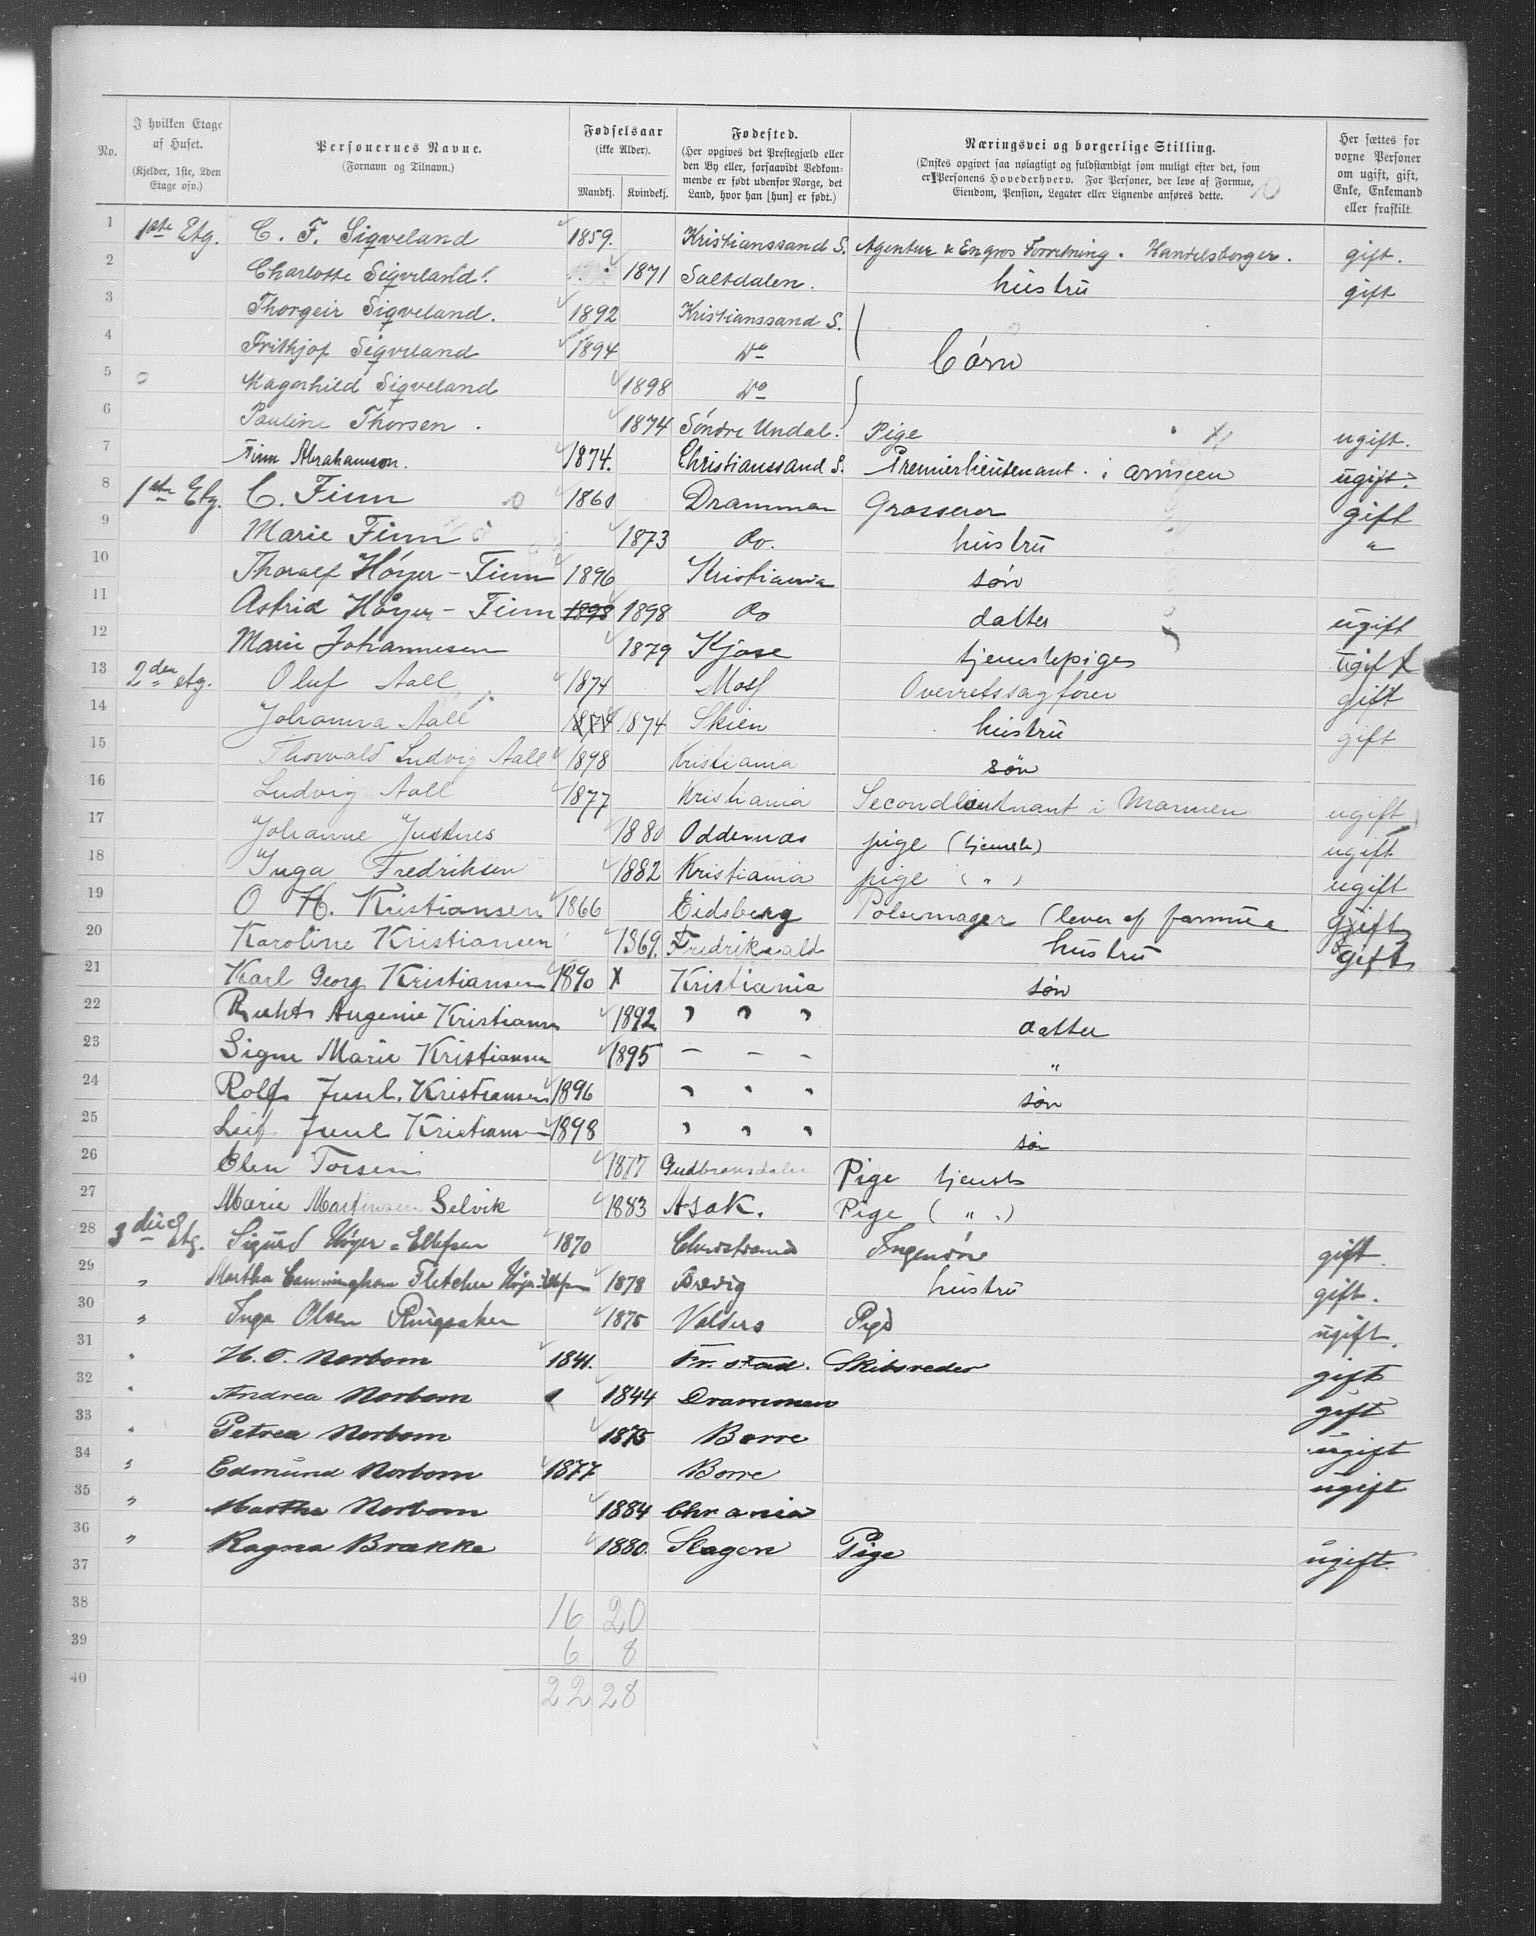 No. | I hvilken Etage af Huset. (Kjelder, 1ste, 2den Etage osv.) | Personernes Navne. (Fornavn og Tilnavn.) | Fødselsaar (ikke Alder). Mandkj. | Kvindekj. | Fødested. (Her opgives det Prestegjæld eller den By eller, forsaavidt Vedkommende er født udenfor Norge, det Land, hvor han [hun] er født.) | Næringsvei og borgerlige Stilling. (Ønskes opgivet saa nøiagtigt og fuldstændigt som muligt efter det, som er Personens Hovederhverv. For Personer, der leve af Formue, Eiendom, Pension, Legater eller Lignende anføres dette. | Her sættes for voxne Personer om ugift, gift, Enke, Enkemand eller fraskilt.
1 1ste Etg. C. F. Sigveland 1859. Kristianssand S. Agentur & Engros Forretning. Handelsborger. gift.
2 Charlotte Sigveland. 1871 Saltdalen. hustru gift
3 Thorgeir Sigveland. 1892 Kristianssand S.
4 Frithjof Sigveland 1894 Do Børn
5 Ragnhild Sigveland 1898 Do
6 Pauline Thorsen. 1874 Søndre Undal. Pige ugift.
7 Finn Abrahamson. 1874. Christianssand S. Premierlieutenant i armeen ugift.
8 1ste Etg. C. Finn 1860 Drammen Grosserer gift
9 Marie Finn 1873 do. hustru "
10 Thoralf Höyer-Finn 1896 Kristiania søn
11 Astrid Höyer-Finn 1898 1898 do datter ugift
12 Marie Johannesen 1879 Kjose tjenstepige ugift
13 2den etg. Oluf Aall 1874 Moss Overretssagfører gift
14 Johanna Aall 1874 1874 Skien hustru gift
15 Thorvald Ludvig Aall 1898 Kristiania søn
16 Ludvig Aall 1877 Kristiania Secondlieutnant i Marinen ugift
17 Johanne Justnes 1880 Oddernæs pige (tjeneste) ugift
18 Inga Fredriksen 1882 Kristiania pige ( " ) ugift
19 O H. Kristiansen 1866 Eidsberg Pølsemager (lever af formue gift
20 Karoline Kristiansen 1869. Fredrikshald hustru gift
21 Karl Georg Kristiansen 1890 X Kristiania søn
22 Augenie Kristiansen 1892 " " " datter
23 Signe Marie Kristiansen 1895 - - - "
24 Rolf Juul. Kristiansen 1896 " " " søn
25 Leif Juul Kristiansen 1898 " " " søn
26 Elen Torsen 1877 Gudbransdalen Pige tjeneste
27 Marie Martinsen Selvik 1883 Asak. Pige ( " )
28 3die Etg. Sigurd Höyer-Ellefsen 1870 Christiania Ingeniør gift
29 " Martha Cunningham Fletcher Höyer Ellefsen 1878 Brevig hustru gift.
30 " Inga Olsen Ringsaker 1875 Valders Pige ugift.
31 " H. O. Norbom 1841. Fr. stad. Skibsreder gift
32 " Andrea Norbom 1844 Drammen gift
33 " Petrea Norbom 1875 Borre ugift
34 " Edmund Norbom 1877 Borre ugift
35 " Martha Norbom 1884 Chrania
36 " Ragna Brække 1880. Slagen Pige ugift.
37
38 16 20
39 6 8
40 22 28